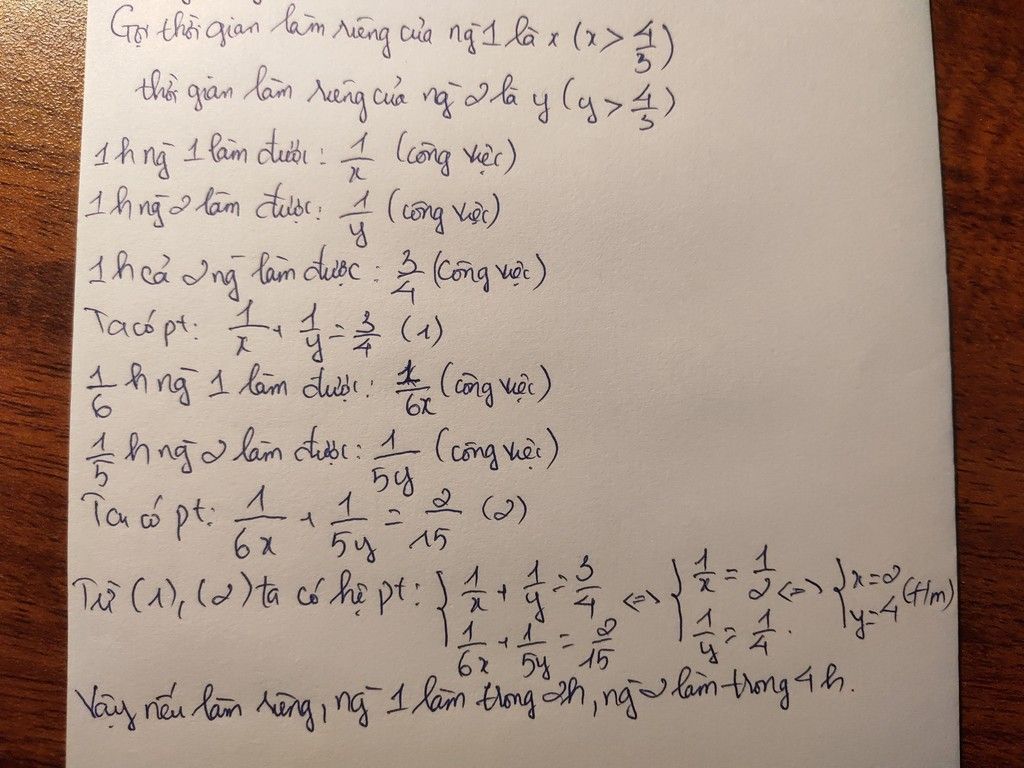 Gọi thời gian làm riêng của ng 1 là x (x > 4/3)
thời gian làm riêng của ng 2 là y (y > 4/3)
1h ng 1 làm được: 1/x (công việc)
1h ng 2 làm được: 1/y (công việc)
1h cả 2 ng làm được: 3/4 (công việc)
Ta có pt: 1/x + 1/y = 3/4 (1)
1/6 h ng 1 làm được: 1/6x (công việc)
1/5 h ng 2 làm được: 1/5y (công việc)
Ta có pt: 1/6x + 1/5y = 2/15 (2)
Từ (1), (2) ta có hệ pt: { 1/x + 1/y = 3/4 ; 1/6x + 1/5y = 2/15 <=> { 1/x = 1/2 ; 1/y = 1/4 . <=> { x = 2 ; y = 4 (t/m)
Vậy nếu làm riêng, ng 1 làm trong 2h, ng 2 làm trong 4h.